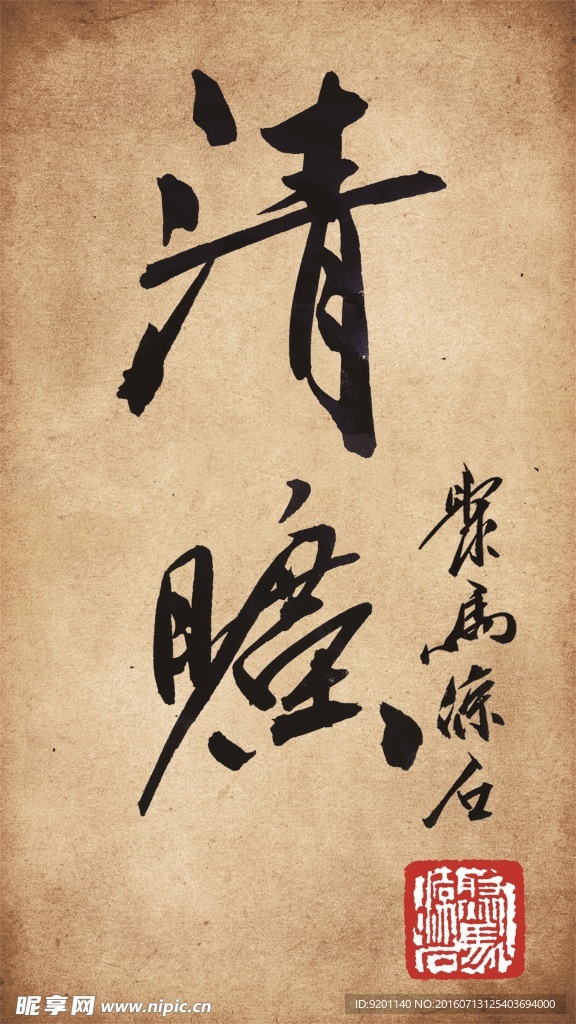 清
聚馬涼石
昵享网 www.nipic.cn
ID:9201140 NO:20160713125403694000